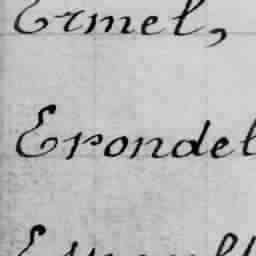 Ermel,
Erondel